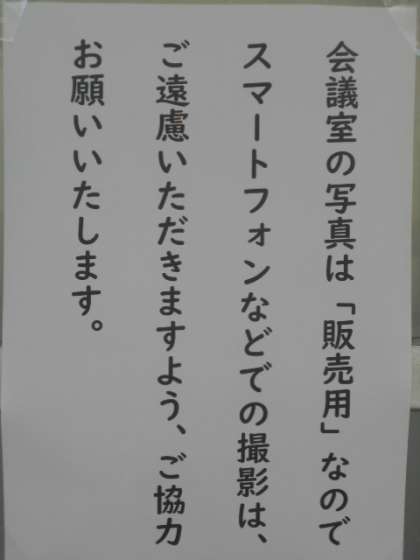 会議室の写真は「販売用」なので
スマートフォンなどでの撮影は、
ご遠慮いただきますよう、ご協力
お願いいたします。